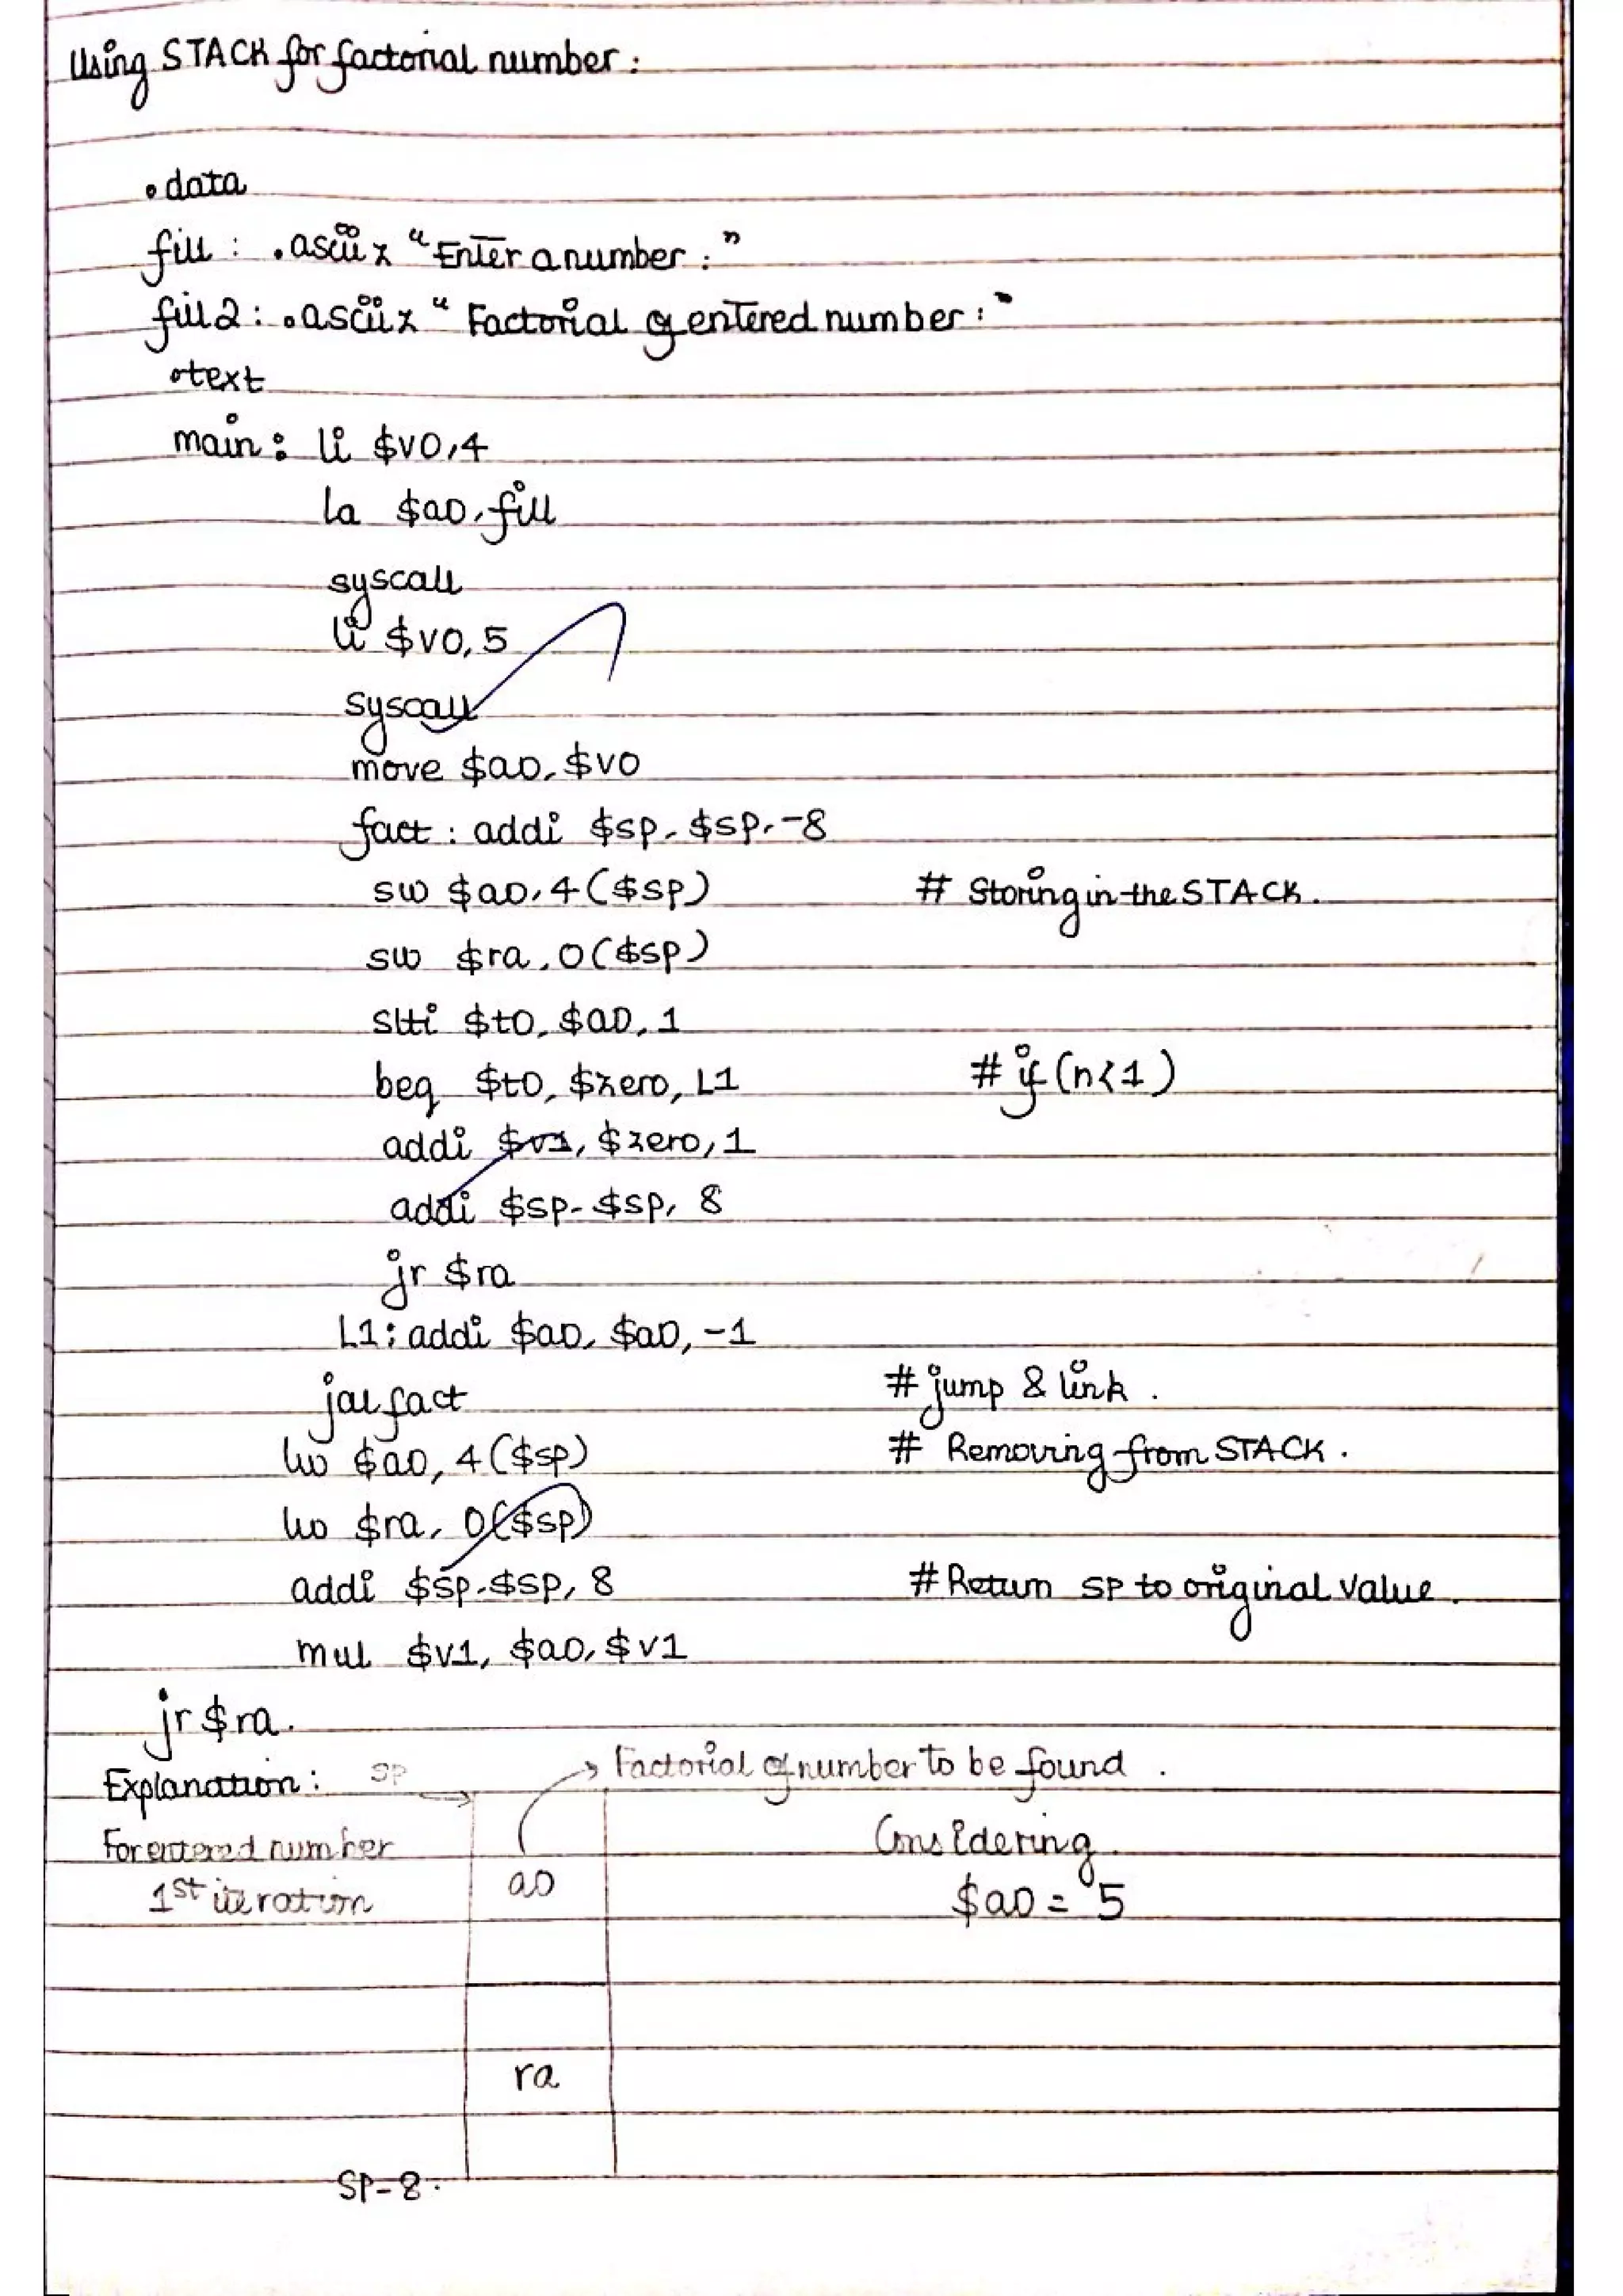 Using STACK for factorial number:
.data
fill: .asciiz "Enter a number:"
fill2: .asciiz "Factorial of entered number:"
.text
main: li $v0,4
la $a0, fill
syscall
li $v0, 5
syscall
move $a0, $v0
fact: addi $sp, $sp, -8
sw $a0, 4($sp) # Storing in the STACK.
sw $ra, 0($sp)
slti $t0, $a0, 1
beq $t0, $zero, L1 # if (n<1)
addi $v1, $zero, 1
addi $sp, $sp, 8
jr $ra
L1: addi $a0, $a0, -1
jal fact # jump & link.
lw $a0, 4($sp) # Removing from STACK.
lw $ra, 0($sp)
addi $sp, $sp, 8 # Return SP to original value.
mul $v1, $a0, $v1
jr $ra.
Explanation: SP → Factorial of number to be found.
For entered number Considering
1st iteration a0 $a0 = 5
ra
SP-8.